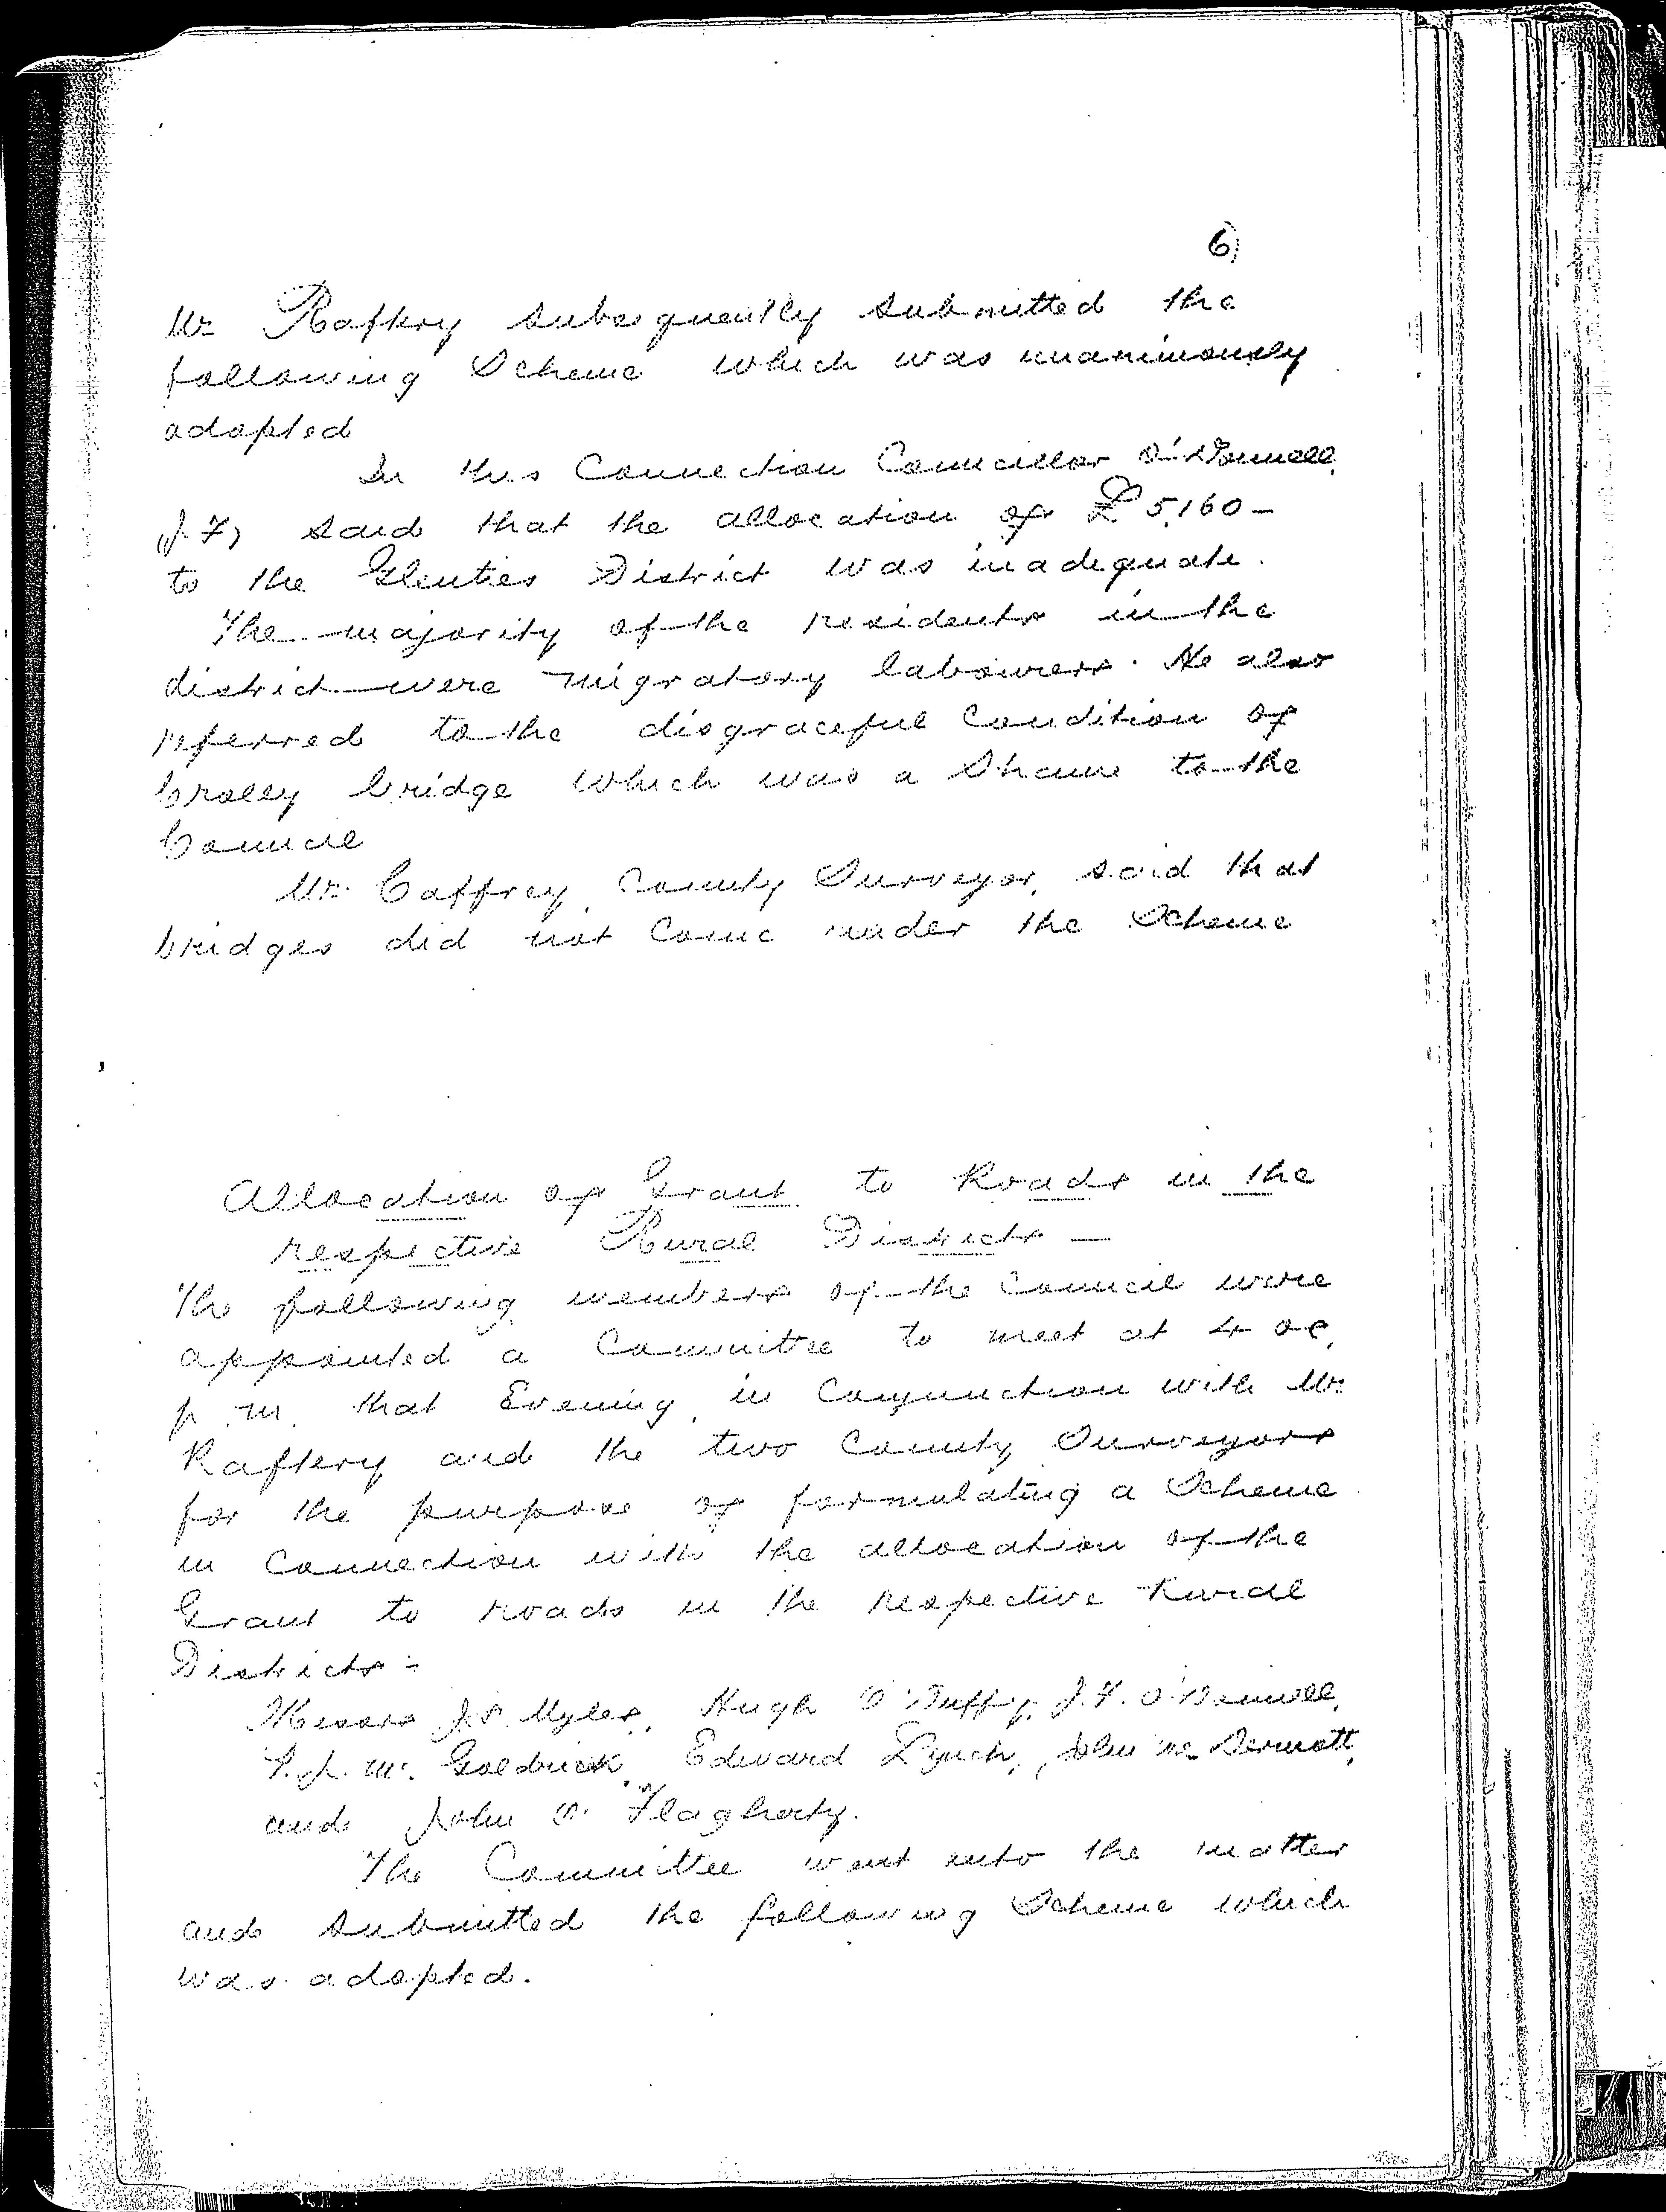 6)
Mr Raftery subsequently submitted the
following Scheme which was unanimously
adopted
In this Connection Councillor O'Donnell
(J F) said that the allocation of £5,160 -
to the Glenties District was inadequate.
The majority of the residents in the
district were migratory labourers. He also
referred to the disgraceful Condition of
Crolly bridge which was a Shame to the
Council
Mr. Caffrey, County Surveyor, said that
bridges did not Come under the Scheme
Allocation of Grant to Roads in the
respective Rural Districts —
The following members of the Council were
appointed a Committee to meet at 4 oc,
p.m. that Evening, in Conjunction with Mr
Raftery and the two County Surveyors
for the purpose of formulating a Scheme
in Connection with the allocation of the
Grant to roads in the respective Rural
Districts :-
Messrs J.S. Myles, Hugh O'Duffy, J.F. O'Donnell,
P.J. Mc. Goldrick, Edward Lynch, John Mc Dermott,
and John O. Flagherty.
The Committee went into the matter
and submitted the following Scheme which
was adopted.